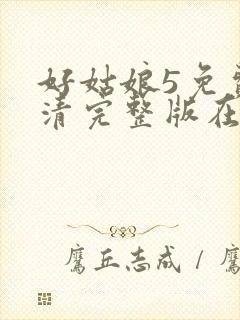 好姑娘5免费
清完整版在
鹰丘志成 / 鹰